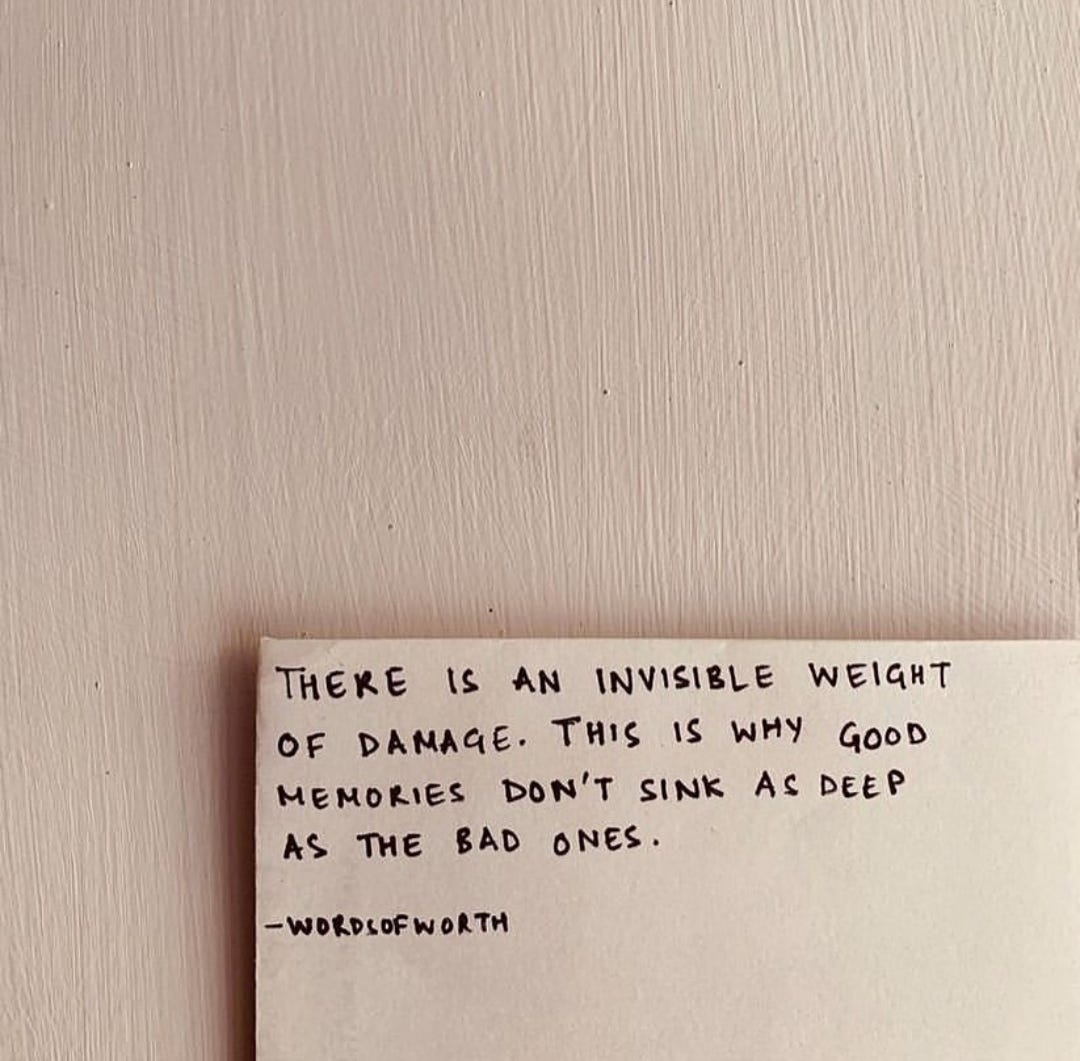 THERE IS AN INVISIBLE WEIGHT
OF DAMAGE. THIS IS WHY GOOD
MEMORIES DON'T SINK AS DEEP
AS THE BAD ONES.
-WORDSOFWORTH